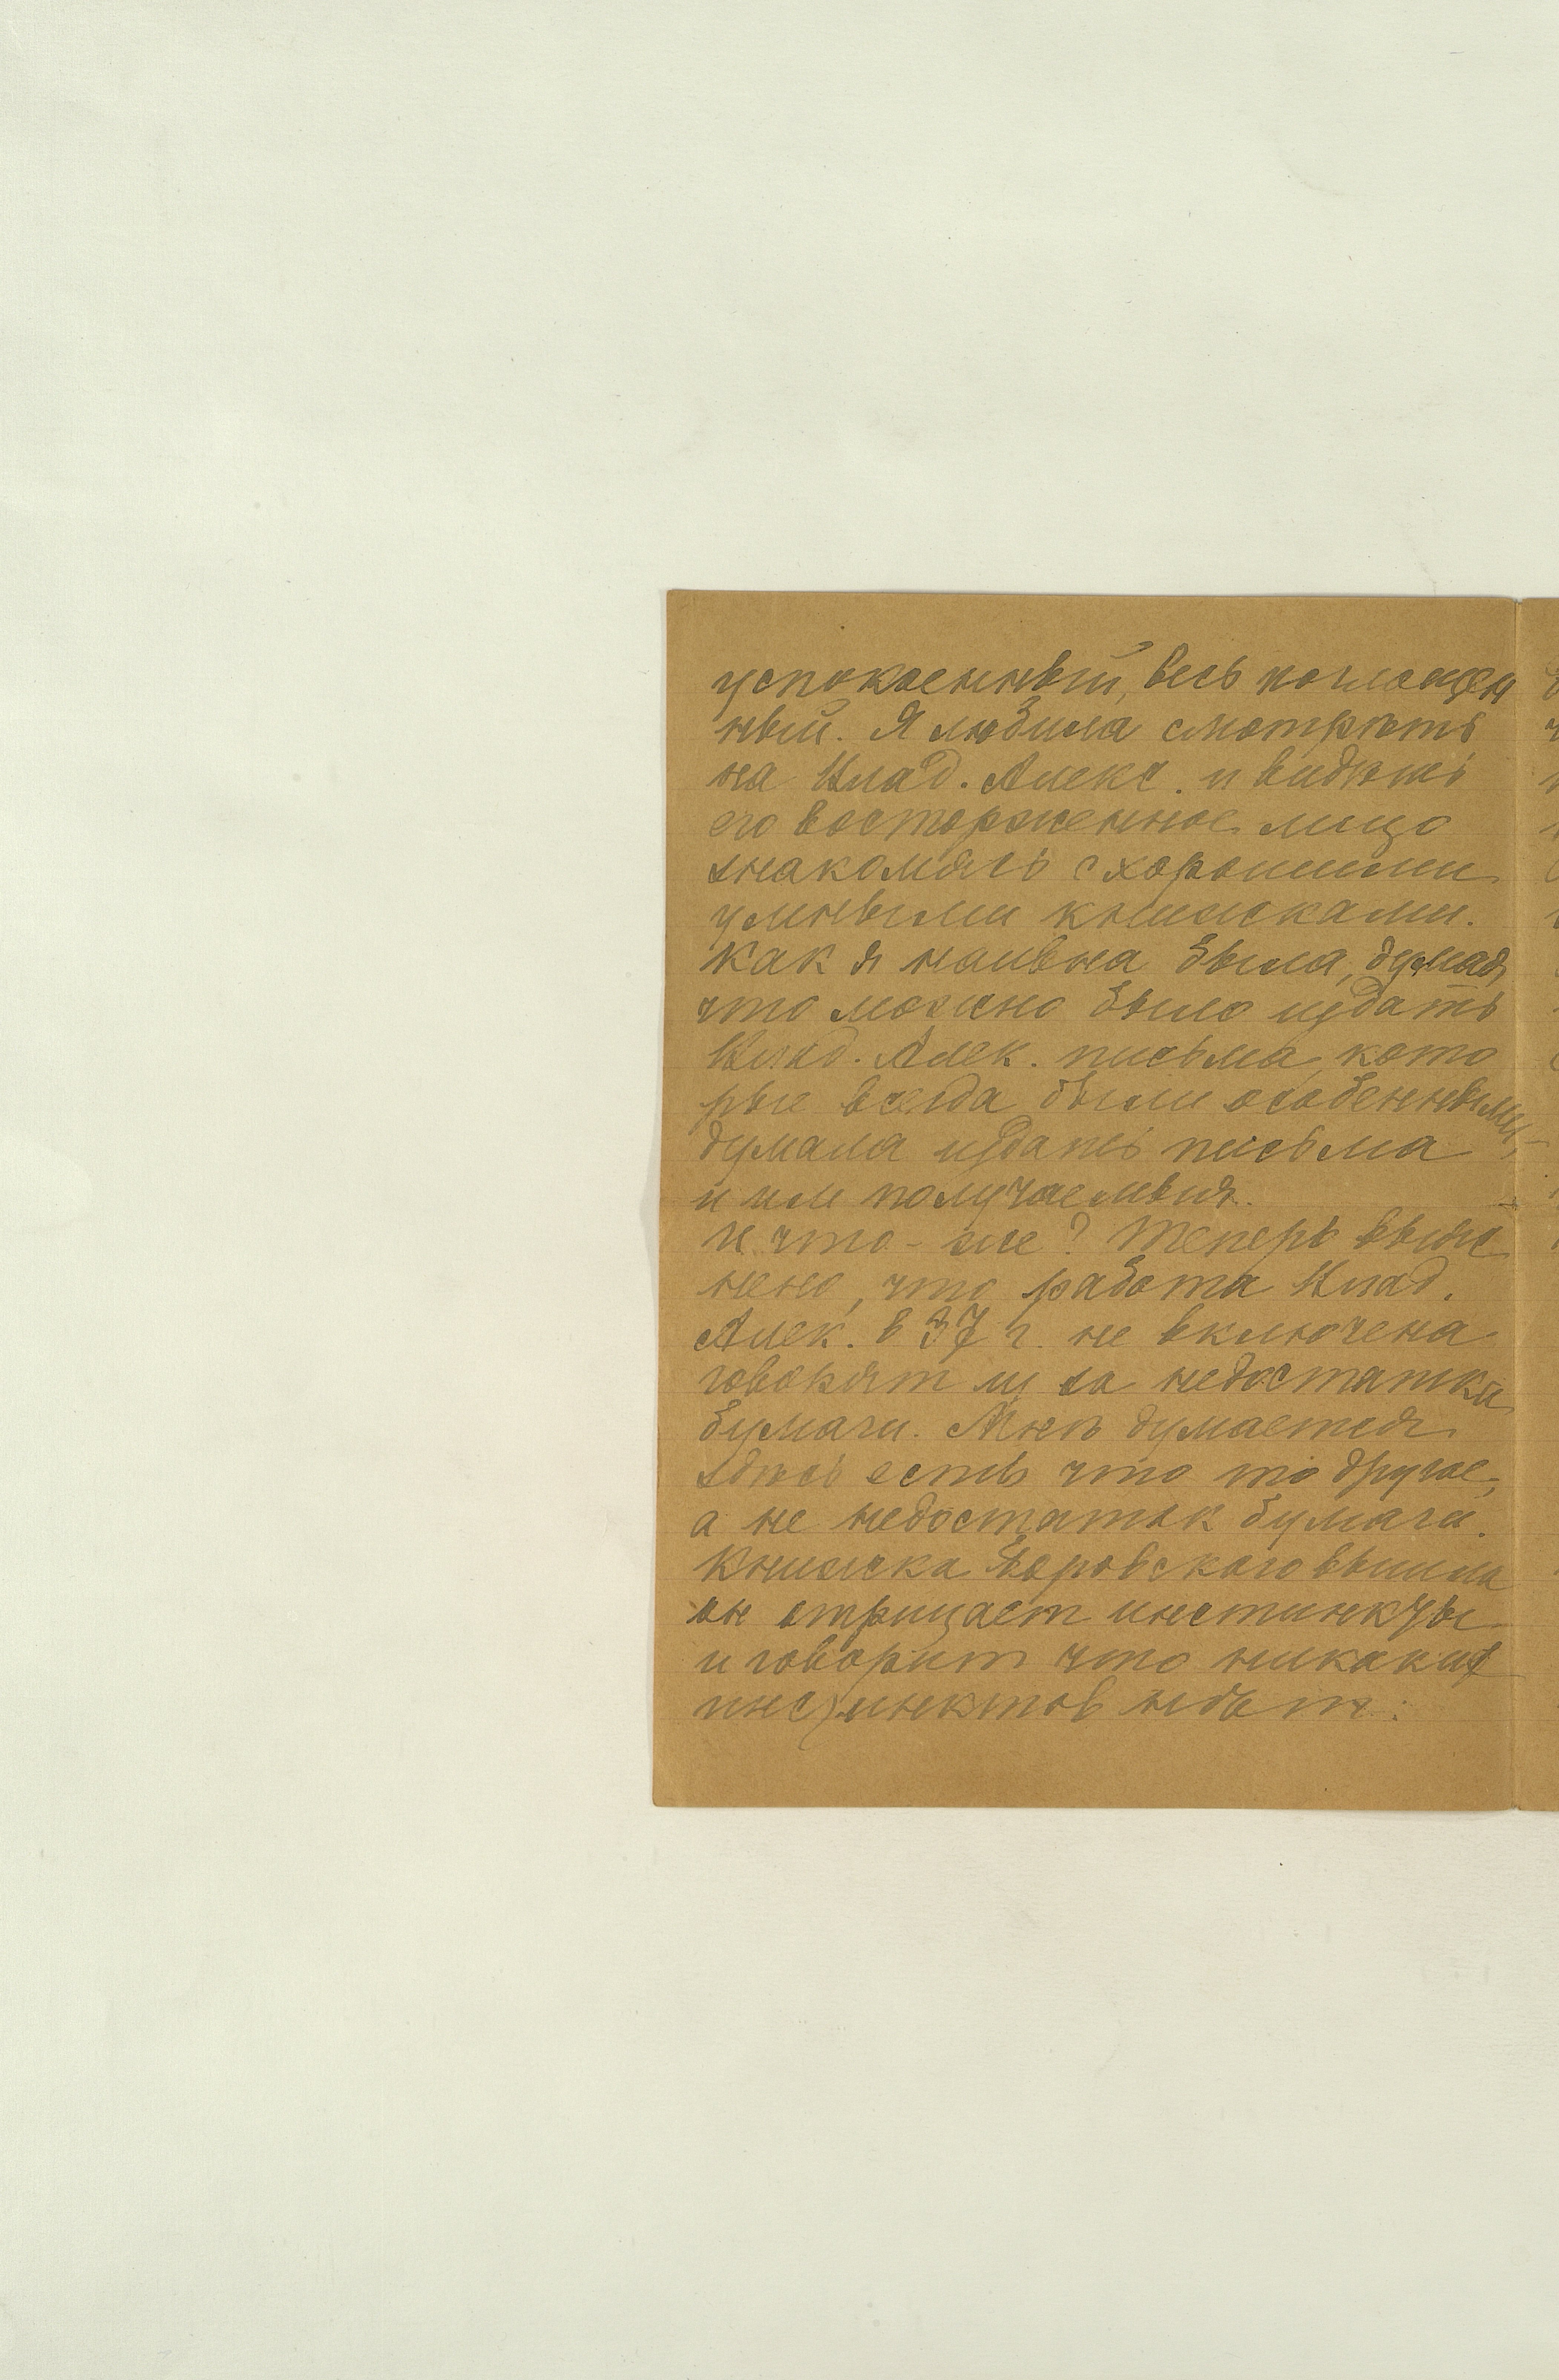 успокоенный, весь поглощен
ный. Я любила смотрѣть
на Влад. Алекс. и видѣть
его восторженное лицо
знакомясь с хорошими
умными книжками.
Как я наивна была, думая
что можно было издать
Влад. Алек. письма, кото
рые всегда были особенными,
думала издать письма
и им получаемыя.
И что-же? Теперь выяс
нено, что работа Влад.
Алек. в 37 г. не включена
говорят из за недостатка
бумаги. Мнѣ думается
здѣсь есть что то другое,
а не недостаток бумаги.
Книжка Боровского вышла
он отрицает инстинкты
и говорит что никаких
инстинктов нѣт.